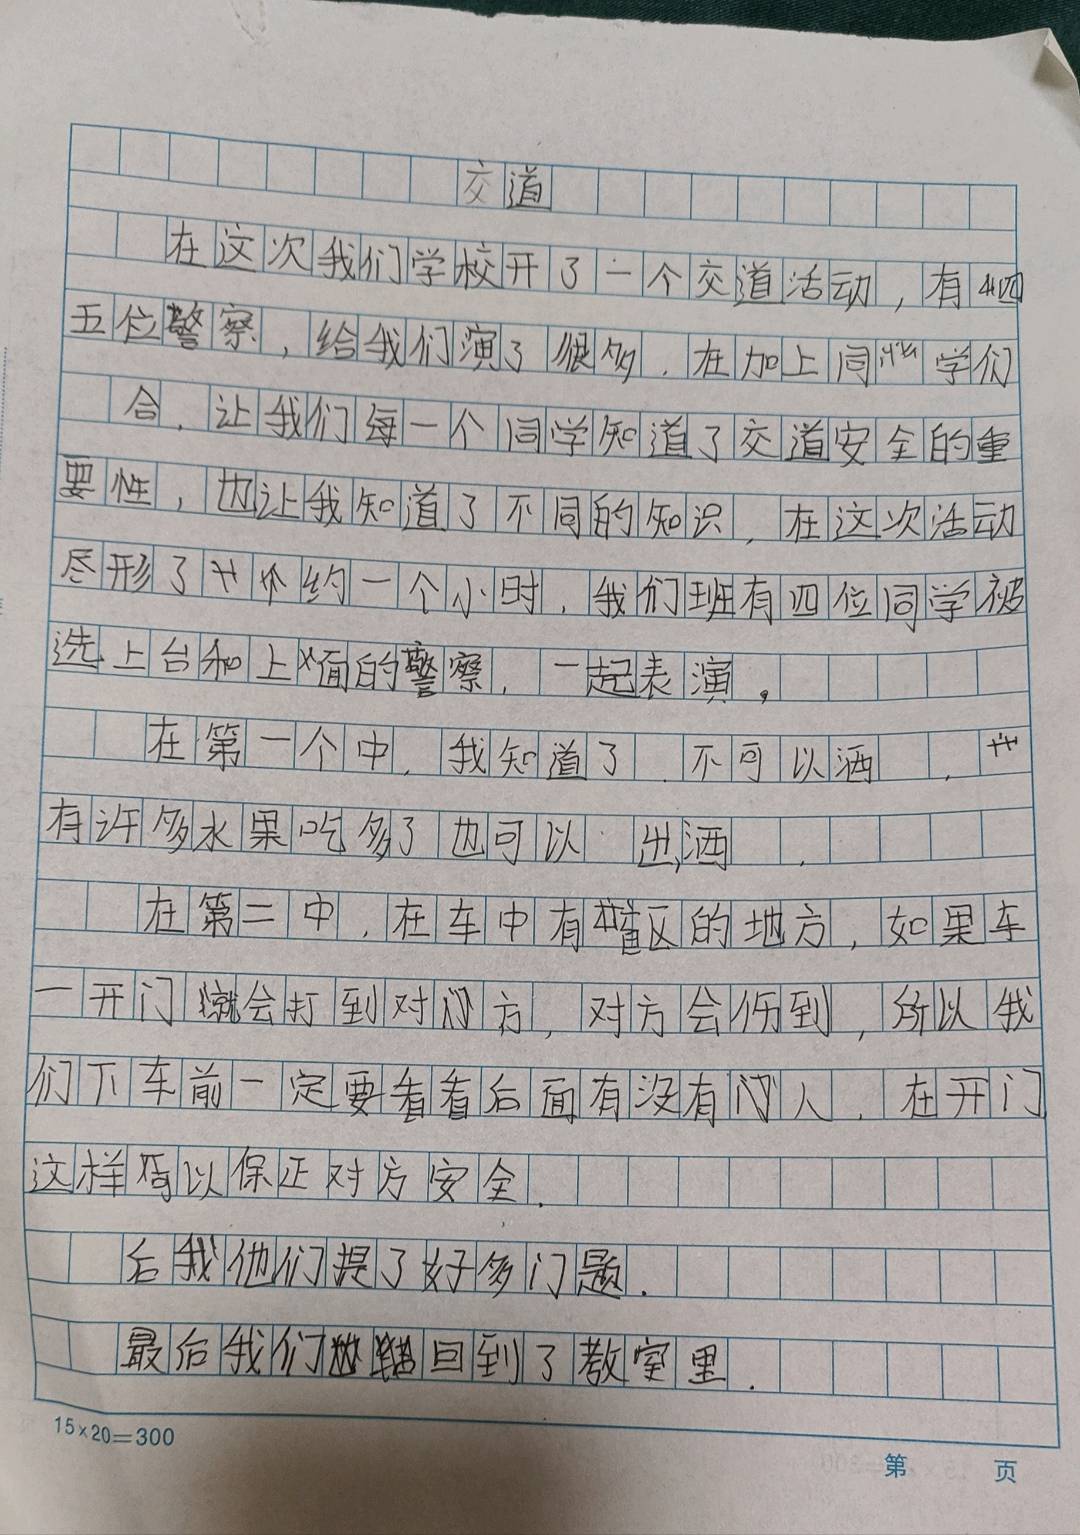 交道
在这次我们学校开了一个交道活动，有四
五位警察，给我们演了很多．在加上同学们
合．让我们每一个同学知道了交道安全的重
要性，也让我知道了不同的知识，在这次活动
尽形了约一个小时．我们班有四位同学被
选上台和上面的警察．一起表演。
在第一个中．我知道了．不可以洒．
有许多水果吃多了也可以出洒．
在第二中．在车中有区的地方，如果车
一开门就会打到对方，对方会伤到，所以我
们下车前一定要看看后面有没有人．在开门
这样可以保正对方安全．
后我他们提了好多门题．
最后我们回到了教室里．
15×20=300
第 页